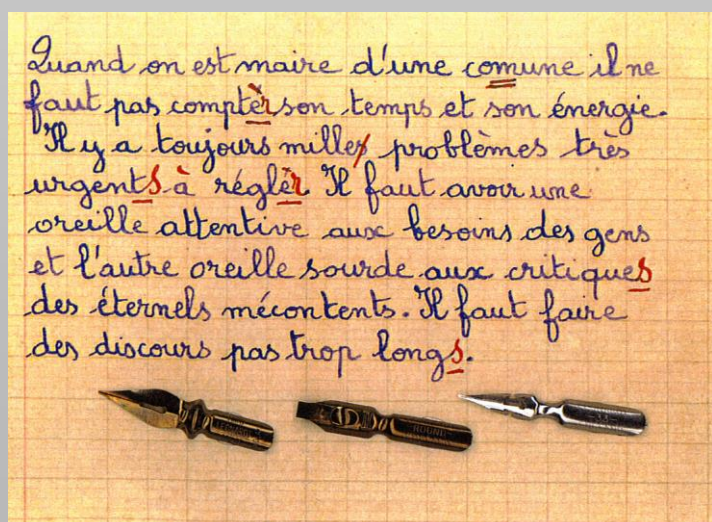 Quand on est maire d'une comune il ne
faut pas comptèr son temps et son énergie.
Il y a toujours milles problèmes très
urgents à réglèr. Il faut avoir une
oreille attentive aux besoins des gens
et l'autre oreille sourde aux critiques
des éternels mécontents. Il faut faire
des discours pas trop longs.